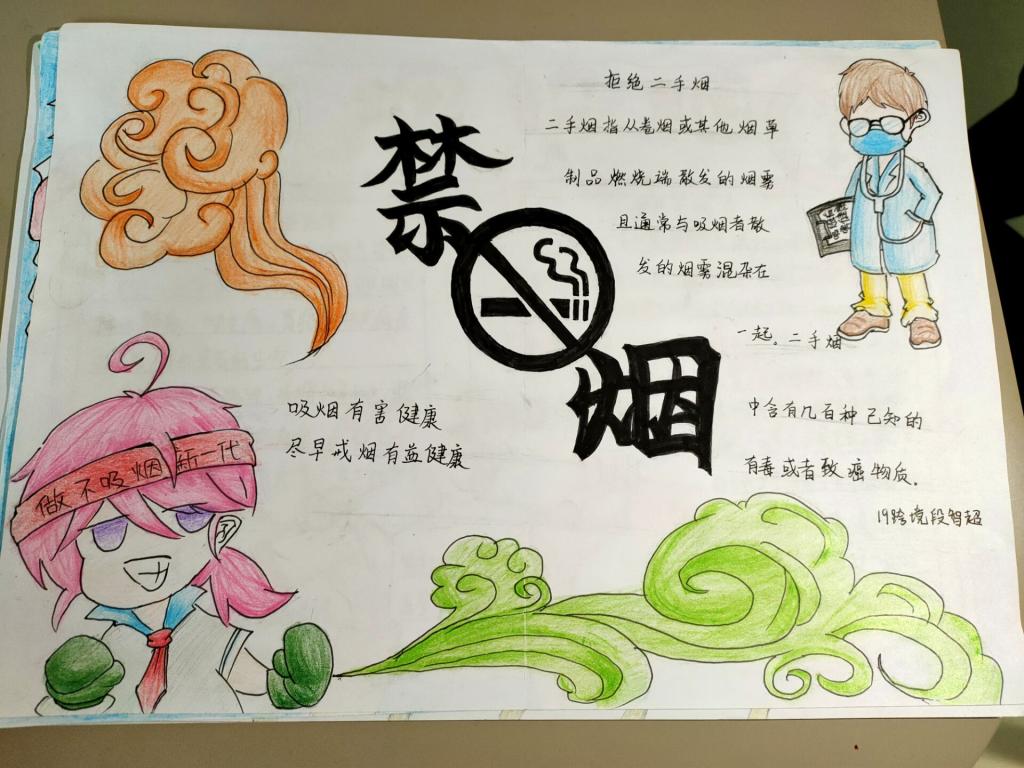 禁
烟
拒绝二手烟
二手烟指从卷烟或其他烟草
制品燃烧端散发的烟雾
且通常与吸烟者散
发的烟雾混杂在
一起。二手烟
中含有几百种已知的
有毒或者致癌物质.
19跨境段智超
吸烟有害健康
尽早戒烟有益健康
做不吸烟新一代